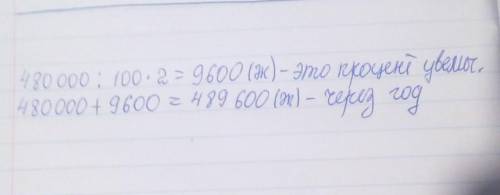 480 000 : 100 · 2 = 9600 (ж) – это процент увелич.
480000 + 9600 = 489 600 (ж) – через год